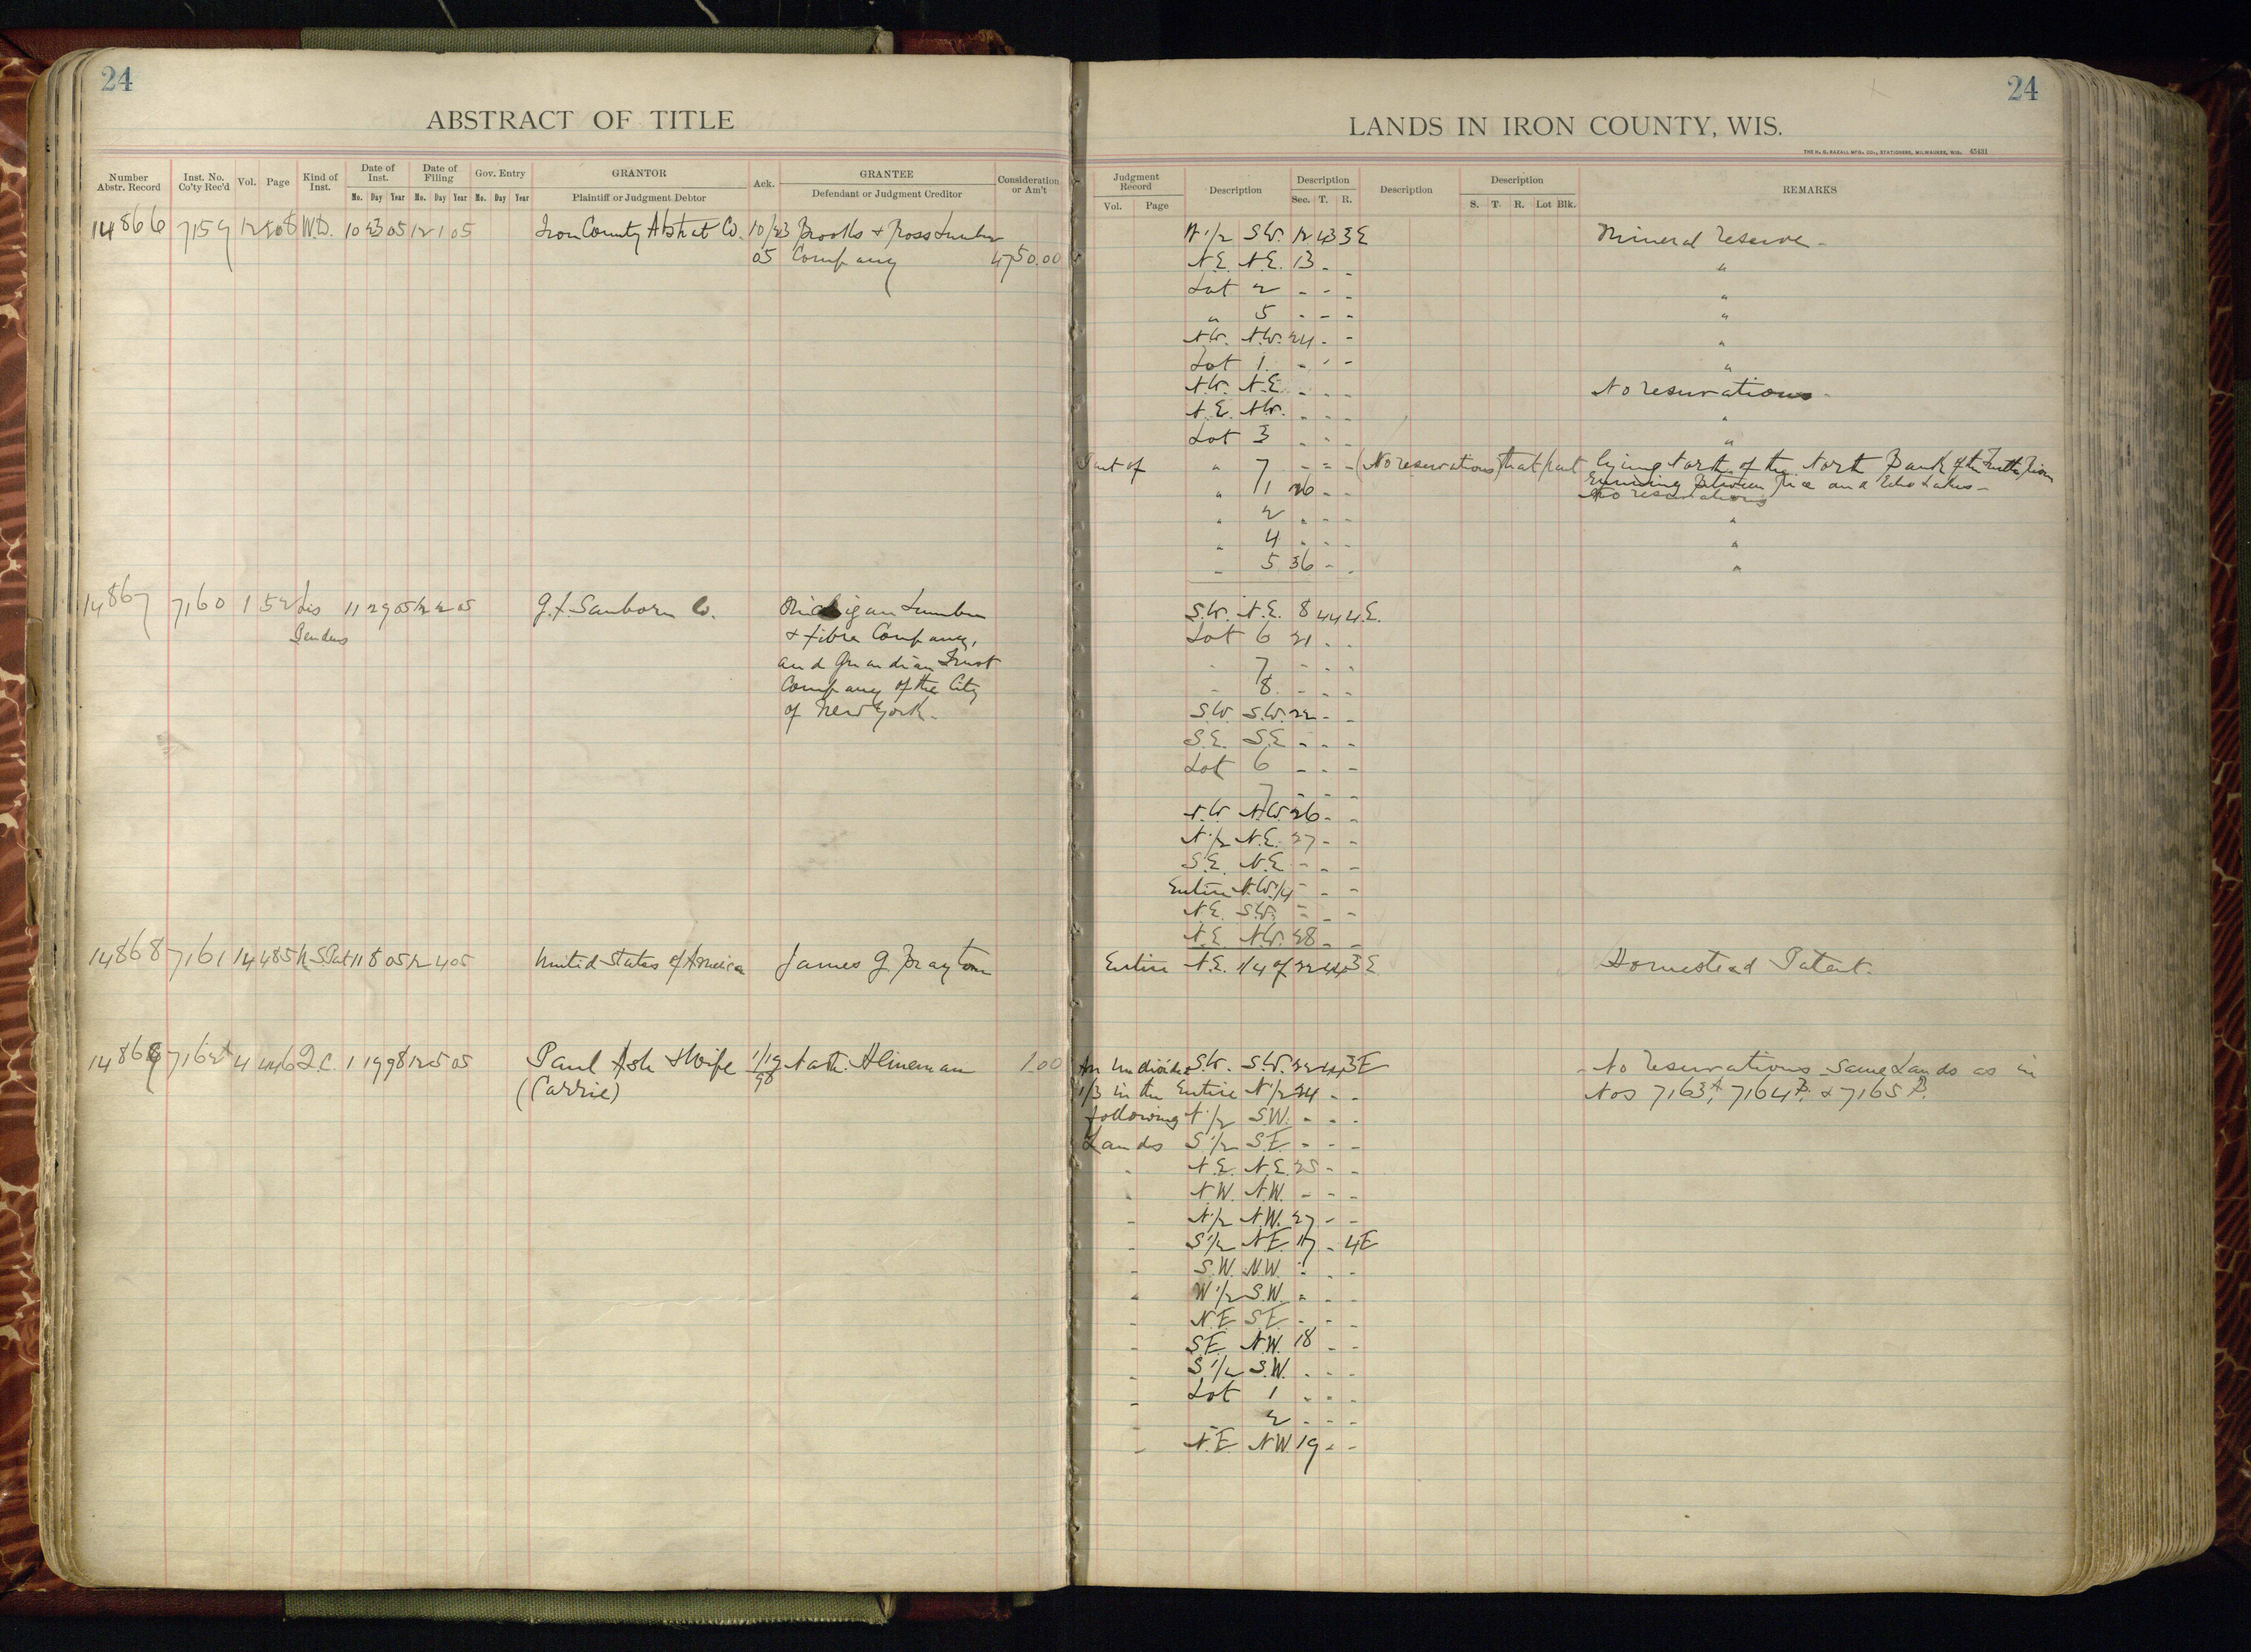 24
ABSTRACT OF TITLE
Number Abstr. Record Inst. No. Co'ty Rec'd Vol. Page Kind of Inst. Date of Inst. Date of Filing Gov. Entry GRANTOR Ack. GRANTEE Consideration or Am't
Mo. Day Year Mo. Day Year Mo. Day Year Plaintiff or Judgment Debtor Defendant or Judgment Creditor
14866 7159 12 508 W.D. 10 23 05 12 1 05 Iron County Abstract Co. 10/23 Brooks & Ross Lumber
05 Company 4750.00
14867 7160 1 52 Lis 11 29 05 12 2 05 J.F. Sanborn Co. Michigan Lumber
Pendens & Fibre Company,
and Guardian Trust
Company of the City
of New York.
14868 7161 14 485 U.S. Pat 11 8 05 12 4 05 United States of America James G. Brayton
14869 7162 4 446 Q.C. 1 19 98 12 5 05 Paul Ash & Wife 1/19 Nath. Alineman 1.00
(Carrie) 98
24
LANDS IN IRON COUNTY, WIS.
THE H. G. RAZALL MFG. CO., STATIONERS, MILWAUKEE, WIS. 45431
Judgment Record Description Description Description Description REMARKS
Vol. Page Sec. T. R. S. T. R. Lot Blk.
N 1/2 S.W. 12 43 3E Mineral reserve -
N.E. N.E. 13 - - "
Lot 2 - - - "
" 5 - - - "
N.W. N.W. 24 - - "
Lot 1 - - - "
N.W. N.E. - - - No reservations -
N.E. N.W. - - - "
Lot 3 - - - "
Part of " 7 - - - (No reservations) that part lying North of the North Bank of the
" 1 26 - - running Between Rice and Echo Lakes -
No reservations
" 2 " - - "
" 4 " - - "
" 5 36 - - "
S.W. N.E. 8 44 4.E.
Lot 6 21 - -
" 7 - - -
" 8 - - -
S.W. S.W. 22 - -
S.E. S.E. - - -
Lot 6 - - -
7 - - -
N.W. N.W. 26 - -
N 1/2 N.E. 27 - -
S.E. N.E. - - -
Entire N.W. 1/4 - - -
N.E. S.W. - - -
N.E. N.W. 28 - -
Entire N.E. 1/4 of 22 44 3E Homestead Patent.
An undivided S.W. S.W. 22 44 3E - No reservations - Same Lands as in
1/3 in the Entire N 1/2 24 - - Nos 7163A, 7164B. & 7165B.
following N 1/2 S.W. - - -
Lands S 1/2 S.E. - - -
" N.E. N.E. 25 - -
" N.W. N.W. - - -
" N 1/2 N.W. 27 - -
" S 1/2 N.E. 17 - 4E
" S.W. N.W. - - -
" W 1/2 S.W. - - -
" N.E. S.E. - - -
" S.E. N.W. 18 - -
" S 1/2 S.W. - - -
" Lot 1 - - -
" 2 - - -
" N.E. N.W. 19 - -